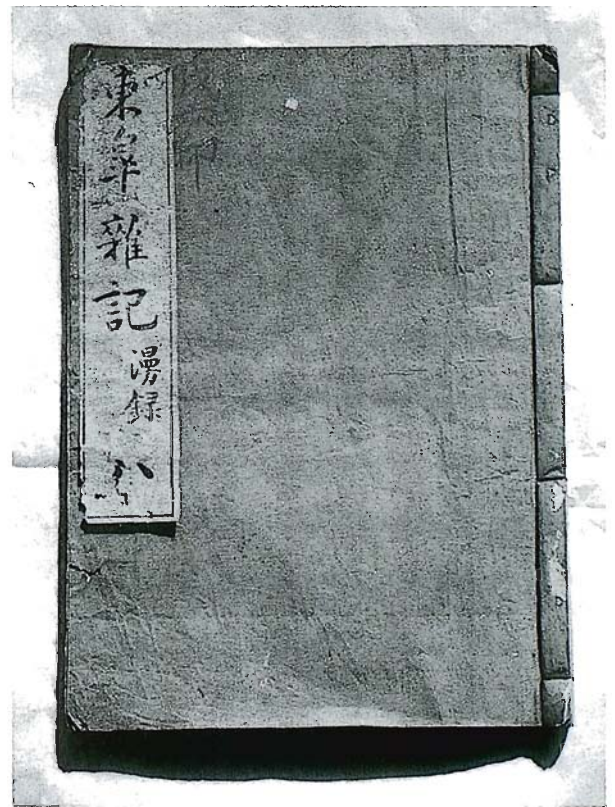 東皐雜記
漫録
八